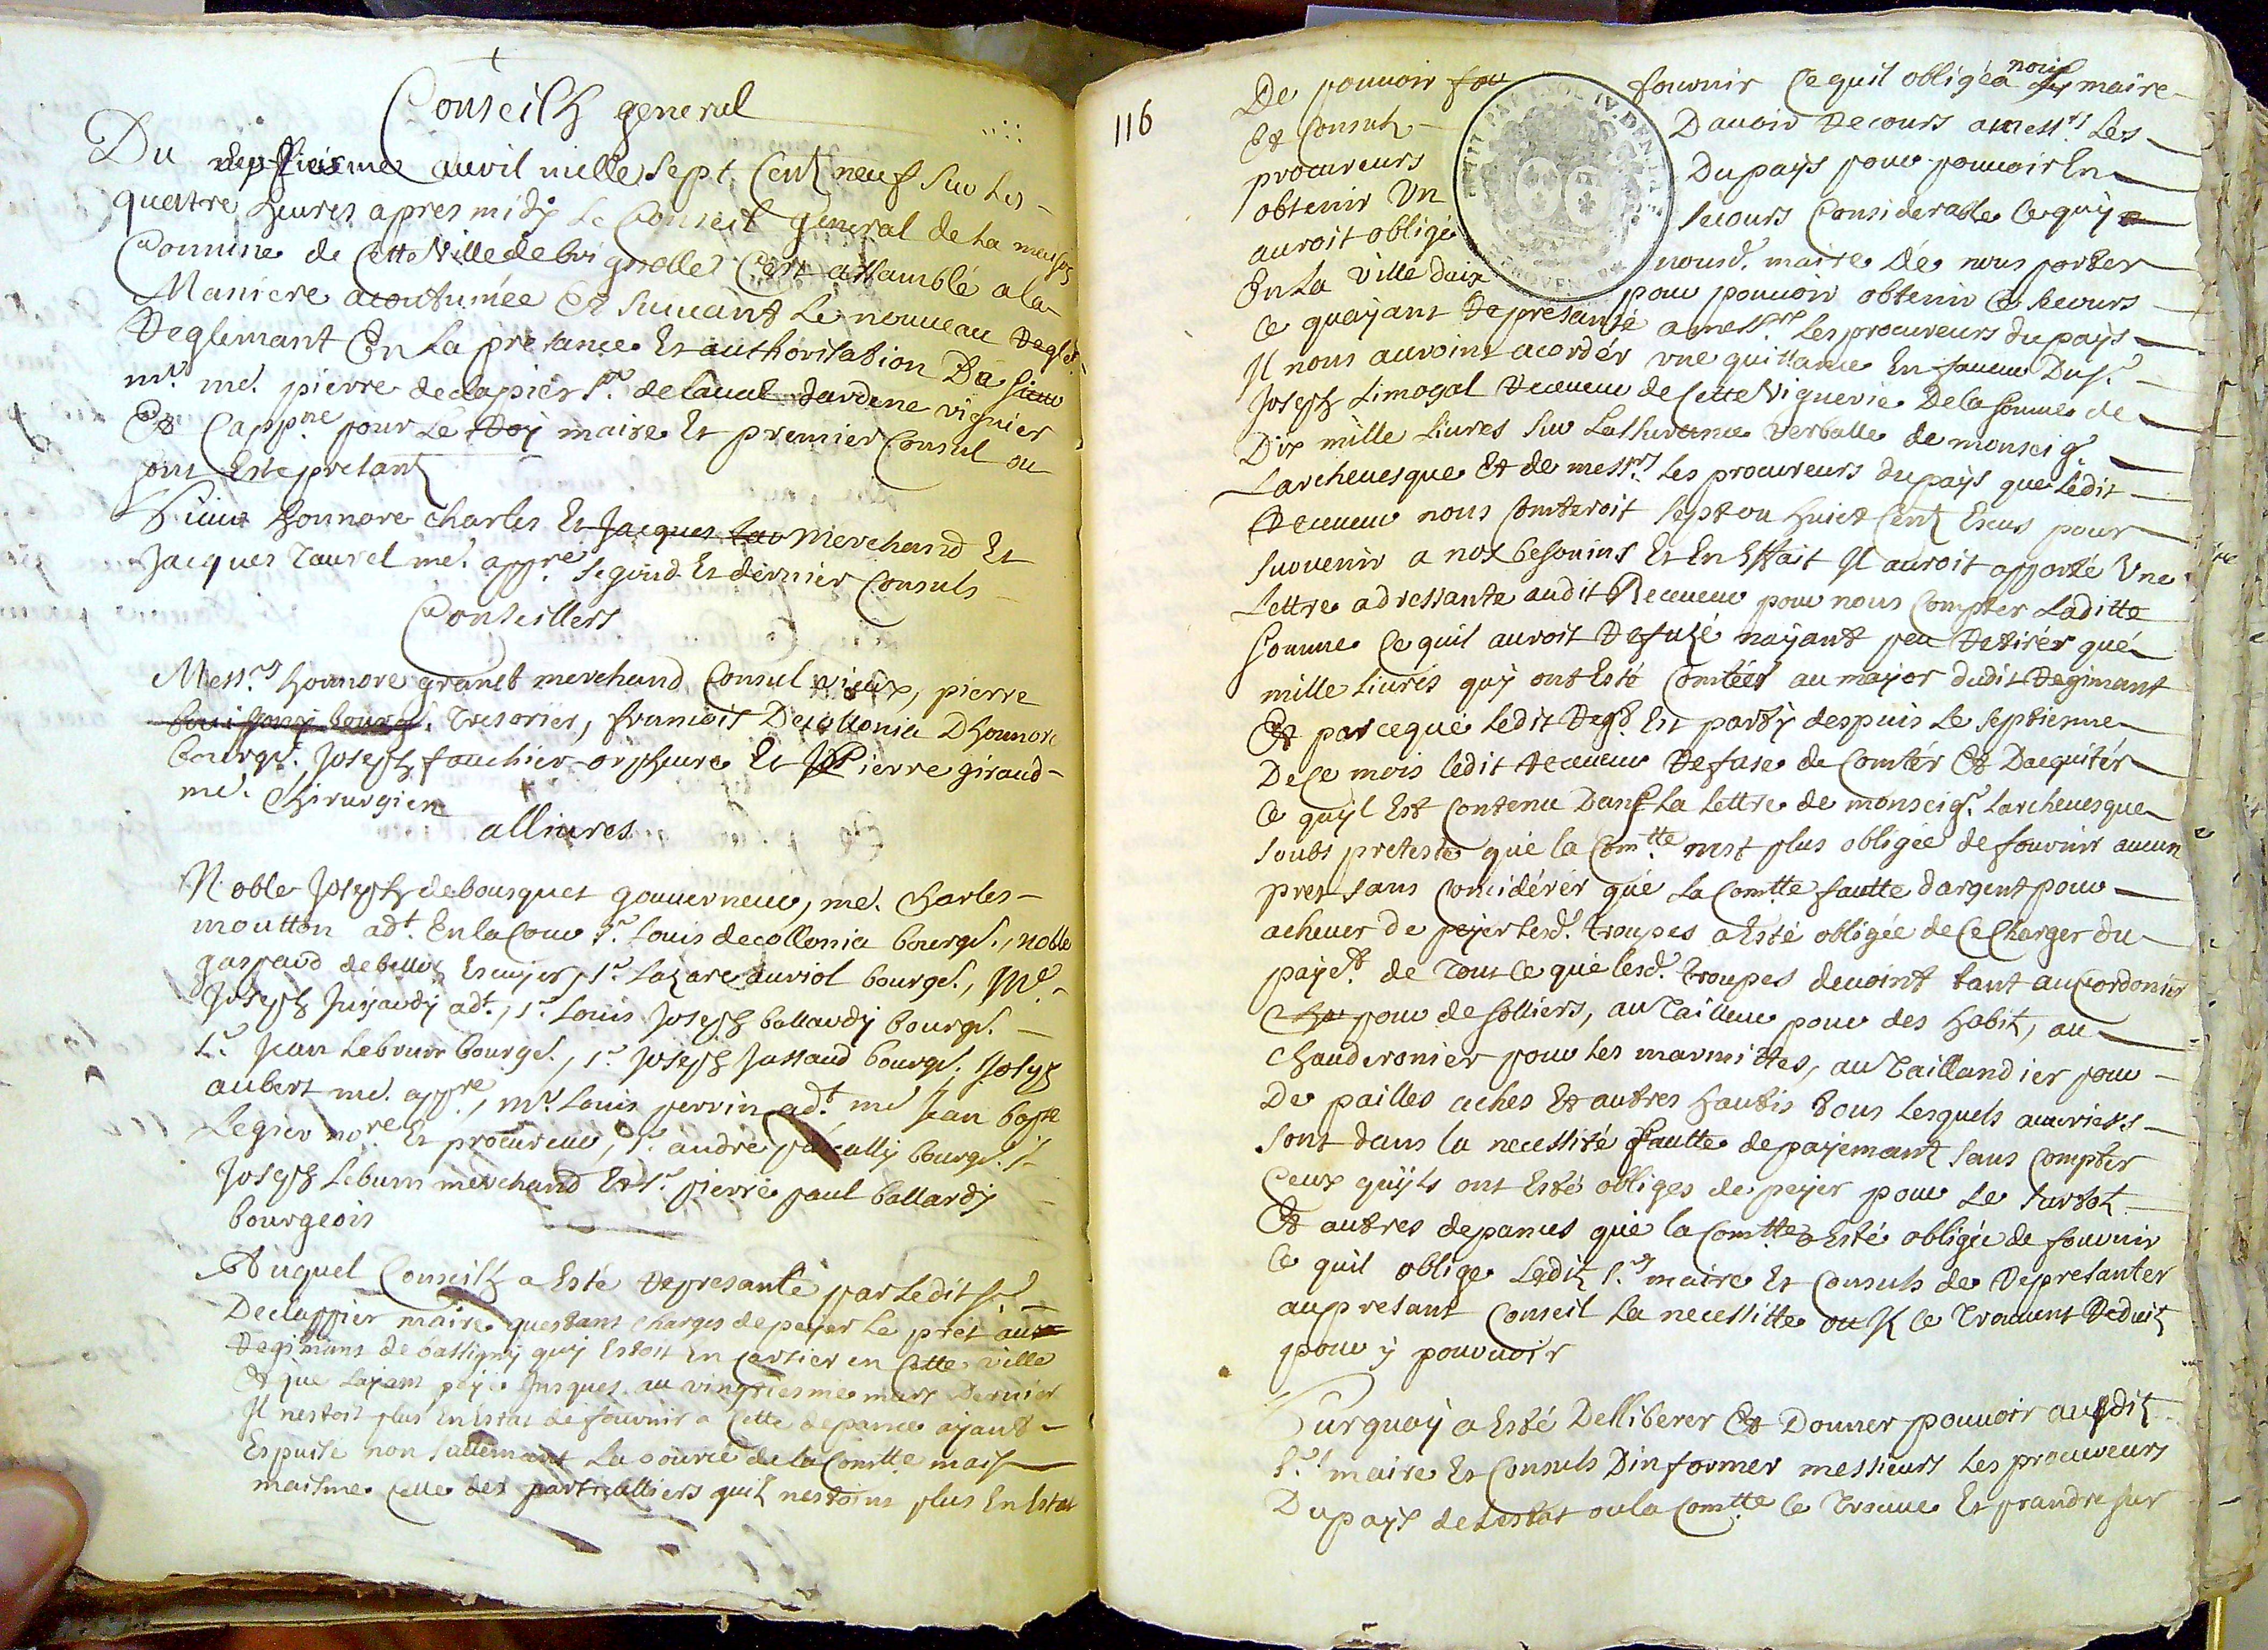 Conseilh general
Du neufviesme auvril mille sept Centz neuf sur les
quattre heures apres midy Le Conseil general de la maison
Commune de Cette Ville de brignolle C'est assamblé a la
Maniere acoutumée Et suivant Le nouveau Regl.
Reglemant En La presance Et authorisation Du sieur
mr. me. pierre declapier sr. de lauat dardene viguier
Et Cappne pour Le Roy maire Et premier Consul ou
ont Este presant
Sieur honnore charles Et Jacques tau merchand Et
Jacques Taurel me. appre segond Et dernier Consuls
Conseillers
Messrs honnore granet merchand Consul vieux, pierre
bourgs. Tresorier, francois Decollonia Dhonnore
bourgs. Joseph fouchier orphevre Et Pierre giraud
me. chirurgien
allivres
Noble Joseph debousquet gouverneur, me. Charles
moutton adt. En la Cour sr. Louis decollonia bourgs., noble
gaspard de bellon Escuyer, sr. Lazare auriol bourgs., Me.
Joseph Jujardy adt., sr. Louis Joseph ballardy bourgs.
sr. Jean Lebrun bourgs., sr. Joseph Jassaud bourgs. Joseph
aubert me. appre, mr. Louis perrin adt. me Jean bapte
Legier nore Et procureur, sr. andre bourgs. sr
Joseph Lebrun merchand Et sr. pierre paul ballardy
bourgeois
Auquel Conseilh a Esté represante par Ledit sr.
Declappier maire questant charges de peyer Le prét au
Regimant de bassigny quy Estoit En cartier en Cette ville
Et que Layant peyé Jusques au vingtiesme mars Dernier
Il nestoit plus En Estat de fournir a Cette depance ayant
Espuise non sullemant La source de la Comtte mais
maisme celle des particulliers quilz nestoint plus En Estat
116
De pouvoir fou fournir Ce quil obligéa nous maire
Et Consulz Davoir recours a messrs Les
procureurs Du pays pour pouvoir En
obtenir Un secours Considerable Ce quy
auroit obligé nousd. maire dé nous porter
En La Ville daix pour pouvoir obtenir Ce secours
Ce quayant represanté a messrs Les procureurs du pays
Il nous auroint acordér une quittance En faveur Du sr.
Joseph Limogal receveur de Cette Viguerie De la somme de
Dix mille Livres sur Lassurance verballe de monseigr.
Larchevesque Et de messrs Les procureurs du pays que Ledit
Receveur nous Conteroit sept ou huict Centz Escus pour
suvenir a nos besouins Et En Effait Il auroit apporté Une
Lettre adressante audit Receveur pour nous Compter Laditte
somme Ce quil auroit refusé nayant peu retirér qué
mille Livres quy ont Esté Comtées au major dudit regimant
Et parceque Ledit regt. Est party despuis Le septienme
De Ce mois ledit receveur refuse de Comtér Et Daquitér
Ce quyl Est Contenu Dans La Lettre de monseigr. Larchevesque
soubs preteste qué la Comtte nest plus obligée de fournir aucun
pret sans Concidérér qué La Comtte fautte dargent pour
achever de peyer Lesd. troupes a Esté obligée de Ce Charger du
payet. de Tout Ce qué lesd. troupes devoint tant au Cordonier
pour de solliers, au Tailleur pour des habitz, au
chauderonier pour Les marmittes, au Taillandier pour
De pailles aches Et autres hautis Tous Lesquels ouvriers
sont dans la necessité fautte de payemant sans Compter
Ceux quyls ont Esté obliges de peyer pour Le surtot
Et autres depances qué la Comtte a Esté obligée de fournir
Ce quil oblige Leditz srs maire Et Consuls de Represanter
au presant Conseil La necessitte ou Il Ce trouvent Reduitz
pour y pourvoir
Surquoy a Esté Delliberer Et Donner pouvoir ausditz
srs maire Et Consuls Dinformer messieurs Les procureurs
Du pays de Lestat ou la Comtte Ce Trouve Et prandre sur